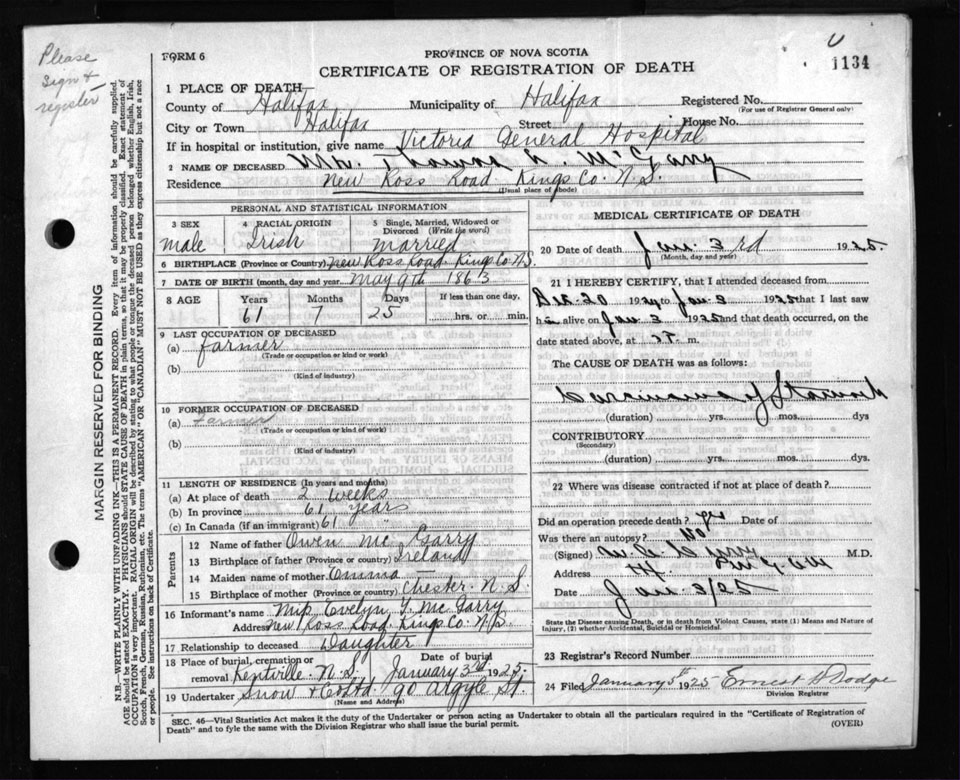 Please
sign &
register
1134
FORM 6
PROVINCE OF NOVA SCOTIA
CERTIFICATE OF REGISTRATION OF DEATH
1 PLACE OF DEATH
County of Halifax Municipality of Halifax Registered No.
(For use of Registrar General only)
City or Town Halifax Street House No.
If in hospital or institution, give name Victoria General Hospital
2 NAME OF DECEASED Mr. Thomas McGarry
Residence New Ross Road Kings Co. N.S.
(Usual place of abode)
PERSONAL AND STATISTICAL INFORMATION
3 SEX Male
4 RACIAL ORIGIN Irish
5 Single, Married, Widowed or Divorced (Write the word) married
6 BIRTHPLACE (Province or Country) New Ross Road Kings Co. N.S.
7 DATE OF BIRTH (month, day and year) May 9th 1863
8 AGE Years 61 Months 7 Days 25 If less than one day, hrs. or min.
9 LAST OCCUPATION OF DECEASED
(a) farmer
(Trade or occupation or kind or work)
(b)
(Kind of industry)
10 FORMER OCCUPATION OF DECEASED
(a) Farmer
(Trade or occupation or kind or work)
(b)
(Kind of industry)
11 LENGTH OF RESIDENCE (In years and months)
(a) At place of death 2 weeks
(b) In province 61 years
(c) In Canada (if an immigrant) 61 "
Parents
12 Name of father Owen Mc Garry
13 Birthplace of father (Province or country) Ireland
14 Maiden name of mother Emma
15 Birthplace of mother (Province or country) Chester N.S.
16 Informant's name Miss Evelyn G. Mc Garry
Address New Ross Road Kings Co. N.S.
17 Relationship to deceased Daughter
18 Place of burial, cremation or removal Kentville N.S. Date of burial January 3rd 1925
19 Undertaker Snow & Co Ltd 90 Argyle St.
(Name and Address)
MEDICAL CERTIFICATE OF DEATH
20 Date of death Jan 3rd 1925.
(Month, day and year)
21 I HEREBY CERTIFY, that I attended deceased from
Dec 20 1924 to Jan 3 1925 that I last saw
h alive on Jan 3 1925 and that death occurred, on
date stated above, at m.
The CAUSE OF DEATH was as follows:
Carcinoma of Stomach
(duration) yrs. mos. dys
CONTRIBUTORY
(Secondary)
(duration) yrs. mos. dys
22 Where was disease contracted if not at place of death?
Did an operation precede death? yes Date of
Was there an autopsy? No
(Signed) M.D.
Address
Date Jan 3/25
State the Disease causing Death, or in death from Violent Causes, state (1) Means and Nature of Injury, (2) whether Accidental, Suicidal or Homicidal.
23 Registrar's Record Number
24 Filed January 5th 1925 Ernest H Dodge
Division Registrar
SEC. 46—Vital Statistics Act makes it the duty of the Undertaker or person acting as Undertaker to obtain all the particulars required in the "Certificate of Registration of
Death" and to fyle the same with the Division Registrar who shall issue the burial permit. (OVER)
MARGIN RESERVED FOR BINDING
N.B.—WRITE PLAINLY WITH UNFADING INK—THIS IS A PERMANENT RECORD. Every item of information should be carefully supplied.
AGE should be stated EXACTLY. PHYSICIANS should STATE CAUSE OF DEATH in plain terms, so that it may be properly classified. Exact statement of
OCCUPATION is very important. RACIAL ORIGIN will be described by stating to what people or tongue the deceased person belonged whether English, Irish,
Scotch, French, German, Russian, Ruthenian, etc. The terms "AMERICAN" OR "CANADIAN" MUST NOT BE USED as they express citizenship but not a race
or people. See instructions on back of Certificate.